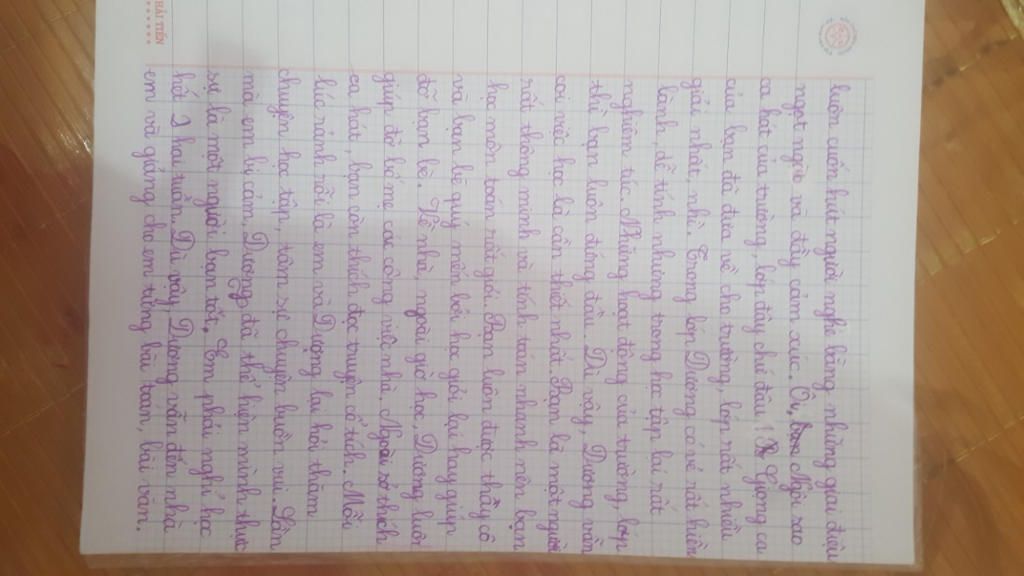 HẢI TIẾN
luôn cuốn hút người nghe bằng những giai điệu
ngọt ngào và đầy cảm xúc. Ôi, Ngôi sao
ca hát của trường, lớp đây chứ đâu! Giọng ca
của bạn đã đưa về cho trường, lớp rất nhiều
giải nhất, nhì. Trong lớp Dương có vẻ rất hiền
lành, dễ tính nhưng trong học tập lại rất
nghiêm túc. Những hoạt động của trường, lớp
thì bạn luôn đứng đầu. Dù vậy, Dương vẫn
coi việc học là cần thiết nhất. Bạn là một người
rất thông minh và tính toán nhanh nên bạn
học môn toán rất giỏi. Bạn luôn được thầy cô
và bạn bè quý mến bởi học giỏi lại hay giúp
đỡ bạn bè. Về nhà, ngoài giờ học, Dương luôn
giúp đỡ bố mẹ các công việc nhà. Ngoài sở thích
ca hát, bạn còn thích đọc truyện cổ tích. Mỗi
lúc rảnh rỗi là em và Dương lại hỏi thăm
chuyện học tập, tâm sự chuyện buồn vui. Lần
mà em bị cảm, Dương đã thể hiện mình thực
sự là một người bạn tốt. Em phải nghỉ học
hết 2 hai tuần. Dù vậy, Dương vẫn đến nhà
em và giảng cho em từng bài toán, bài văn.